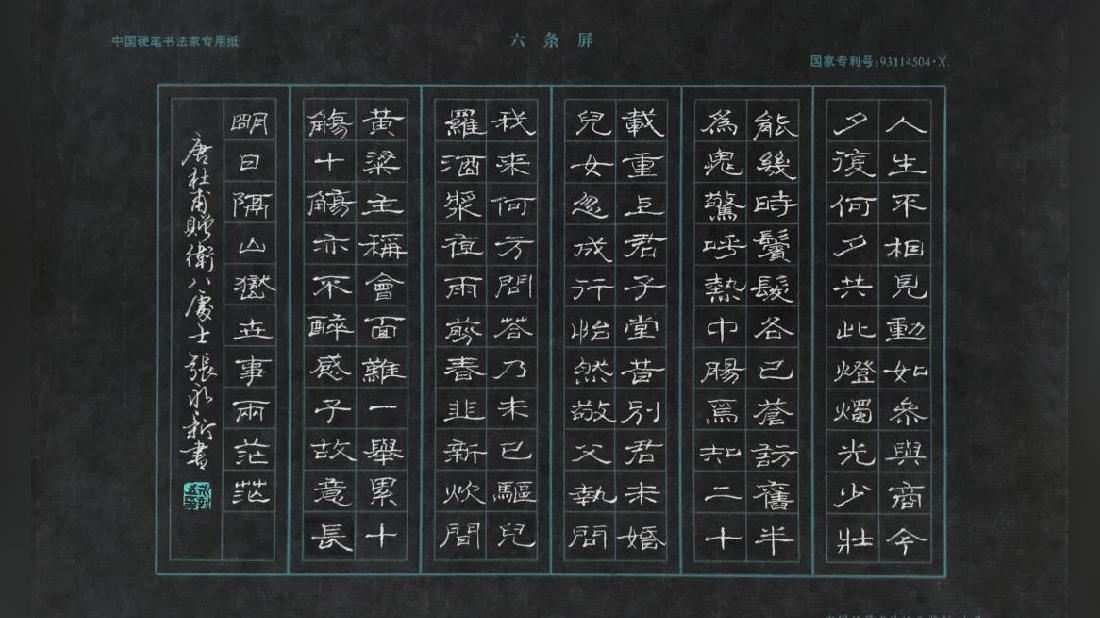 中国硬笔书法家专用纸
六条屏
国家专利号:93114504·X.
人生不相見動如參與商今
夕復何夕共此燈燭光少壯
能幾時鬢髮各已蒼訪舊半
爲鬼驚呼熱中腸焉知二十
載重上君子堂昔別君未婚
兒女忽成行怡然敬父執問
我来何方問答乃未已驅兒
羅酒漿夜雨剪春韭新炊間
黃粱主稱會面難一舉累十
觴十觴亦不醉感子故意長
明日隔山嶽世事兩茫茫
唐杜甫贈衛八處士張永新書